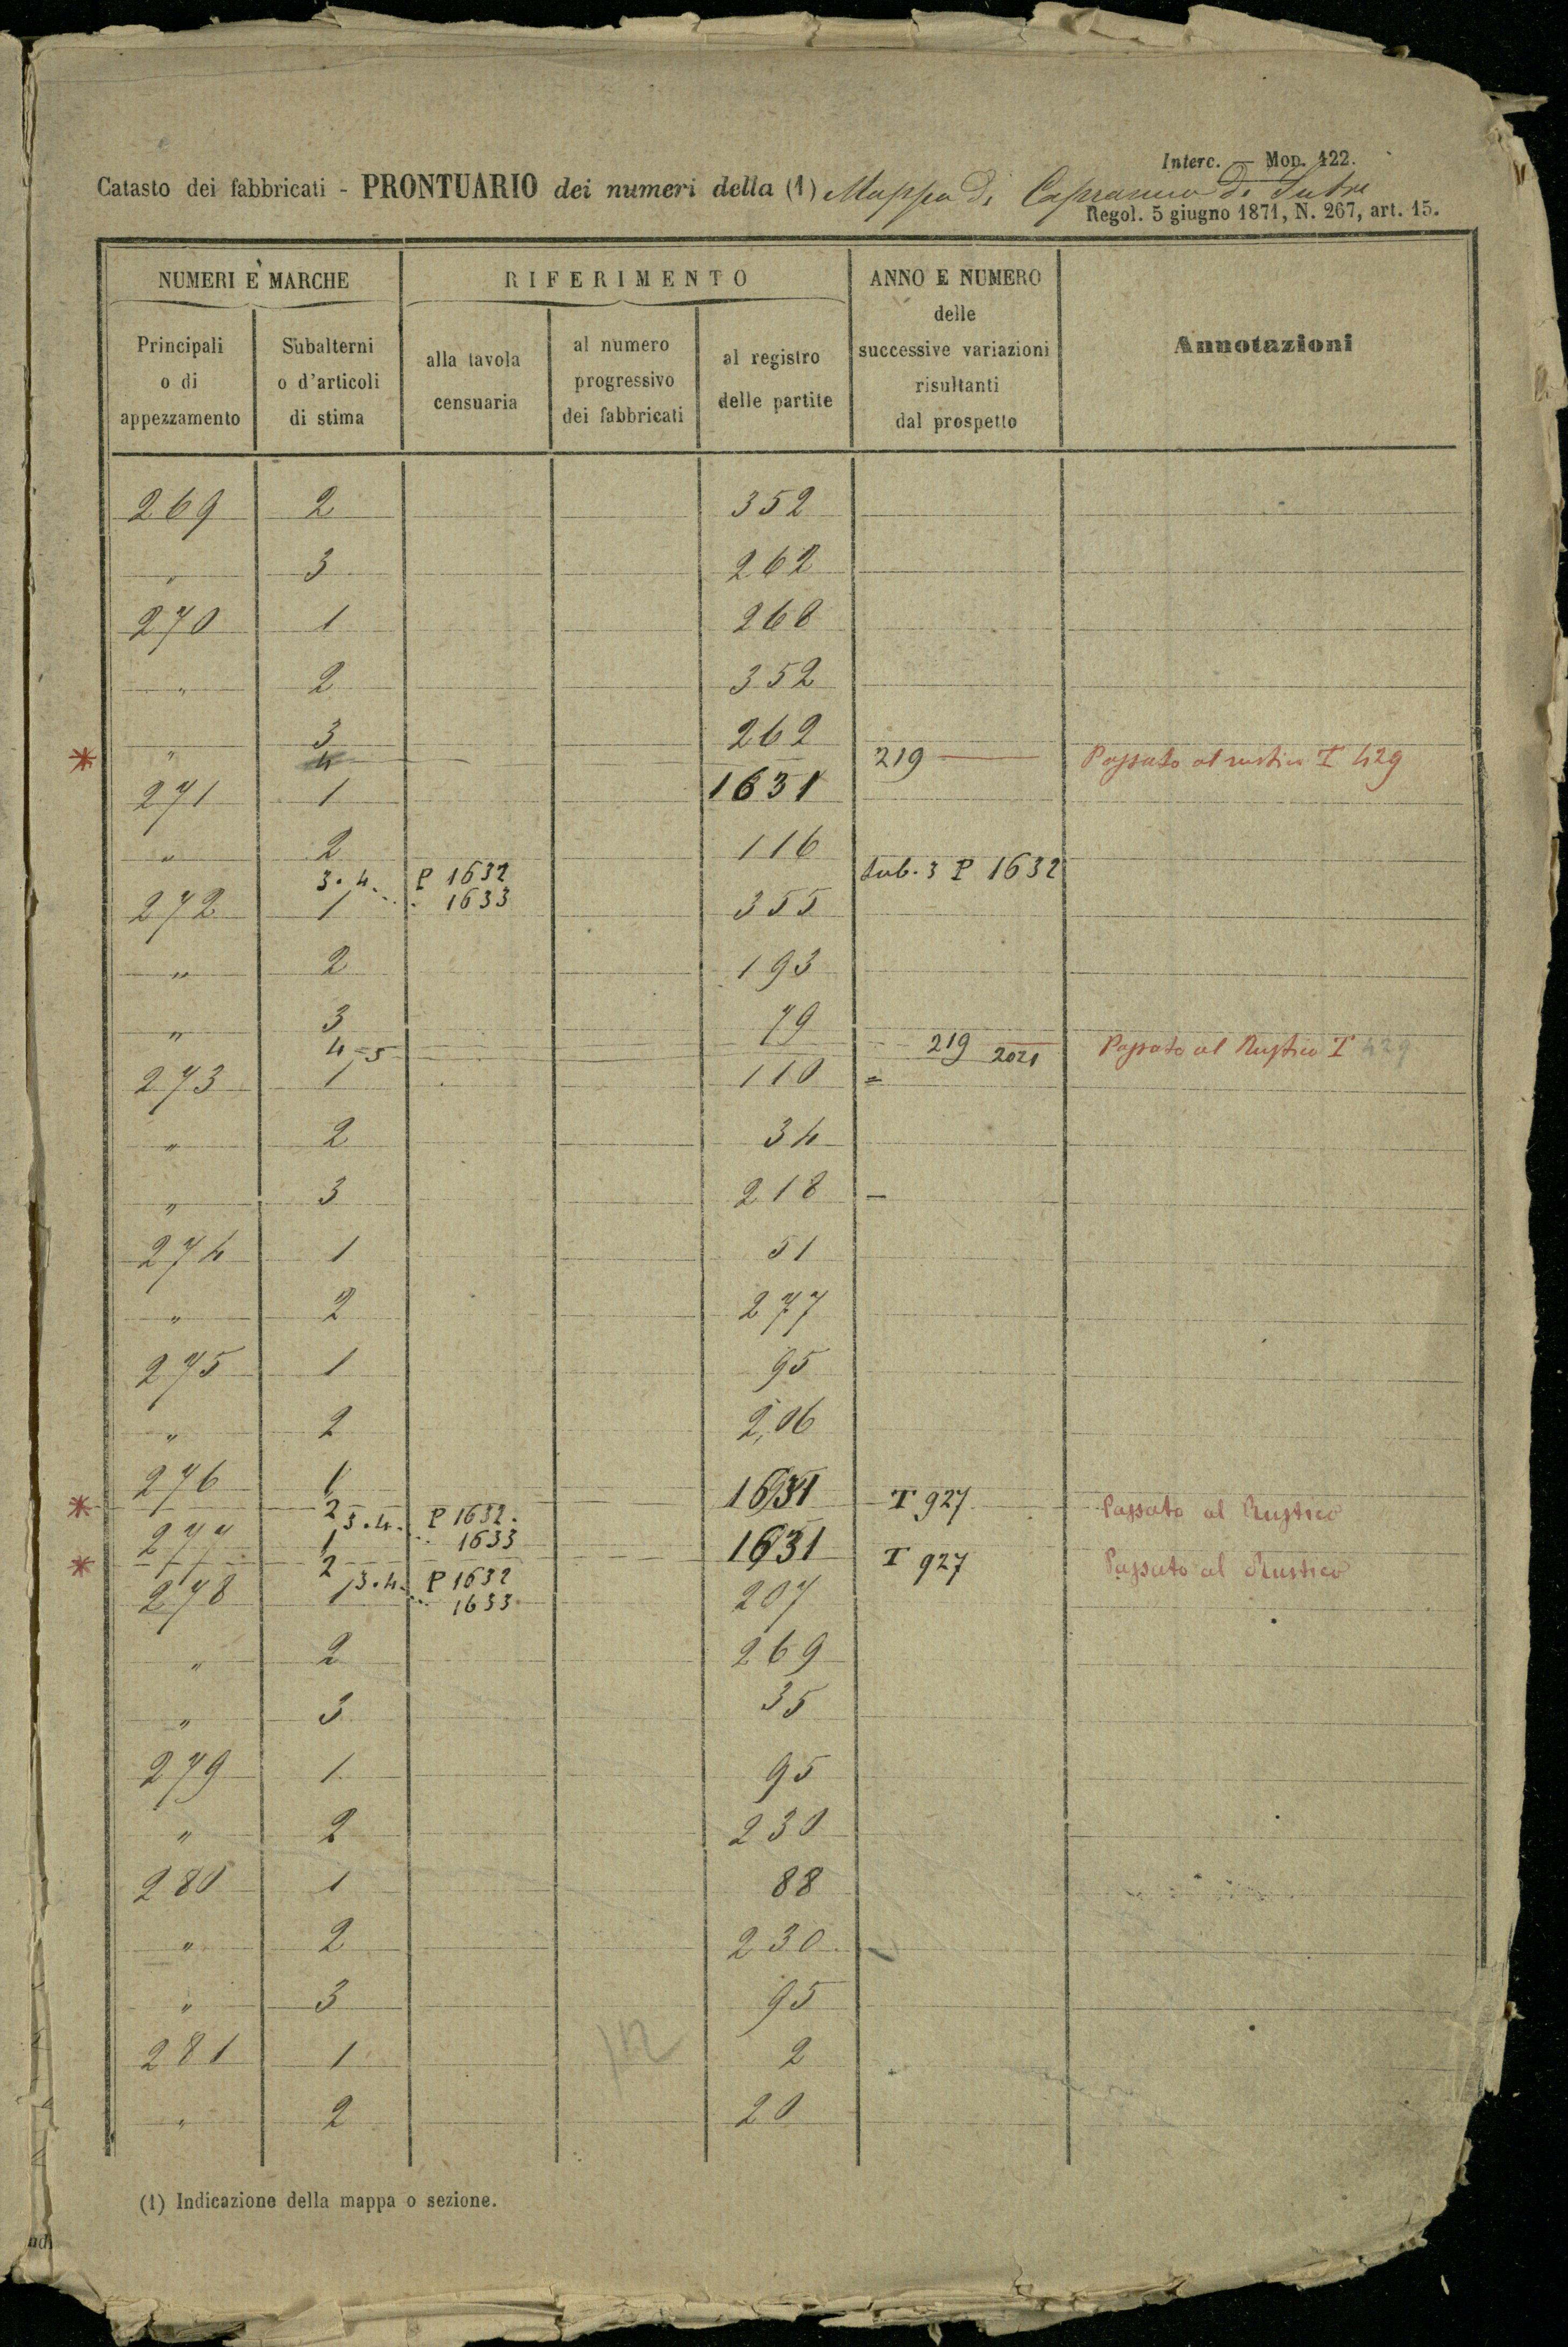 Interc. — Mod. 122.
Catasto dei fabbricati - PRONTUARIO dei numeri della (1) Mappa di Capranica di Sutri
Regol. 5 giugno 1871, N. 267, art. 15.
NUMERI E MARCHE
RIFERIMENTO
ANNO E NUMERO
delle
successive variazioni
risultanti
dal prospetto
Annotazioni
Principali
o di
appezzamento
Subalterni
o d'articoli
di stima
alla tavola
censuaria
al numero
progressivo
dei fabbricati
al registro
delle partite
269 2 352
" 3 262
270 1 268
" 2 352
" 3 262
* 4 219 — Passato al rustico T 429
271 1 1631
" 2 116
3.4. P 1632 sub. 3 P 1632
.. 1633
272 1 355
" 2 193
" 3 79
4-5 219 2021 Passato al Rustico T 429
273 1 110 =
" 2 34
" 3 218 —
274 1 51
" 2 277
275 1 95
" 2 206
276 1 1631
* 2 3.4. P 1632. T 927 Passato al Rustico
.. 1633
277 1 1631
* 2 3.4. P 1632 T 927 Passato al Rustico
.. 1633
278 1 207
" 2 269
" 3 35
279 1 95
" 2 230
280 1 88
" 2 230
" 3 95
281 1 2
" 2 20
(1) Indicazione della mappa o sezione.